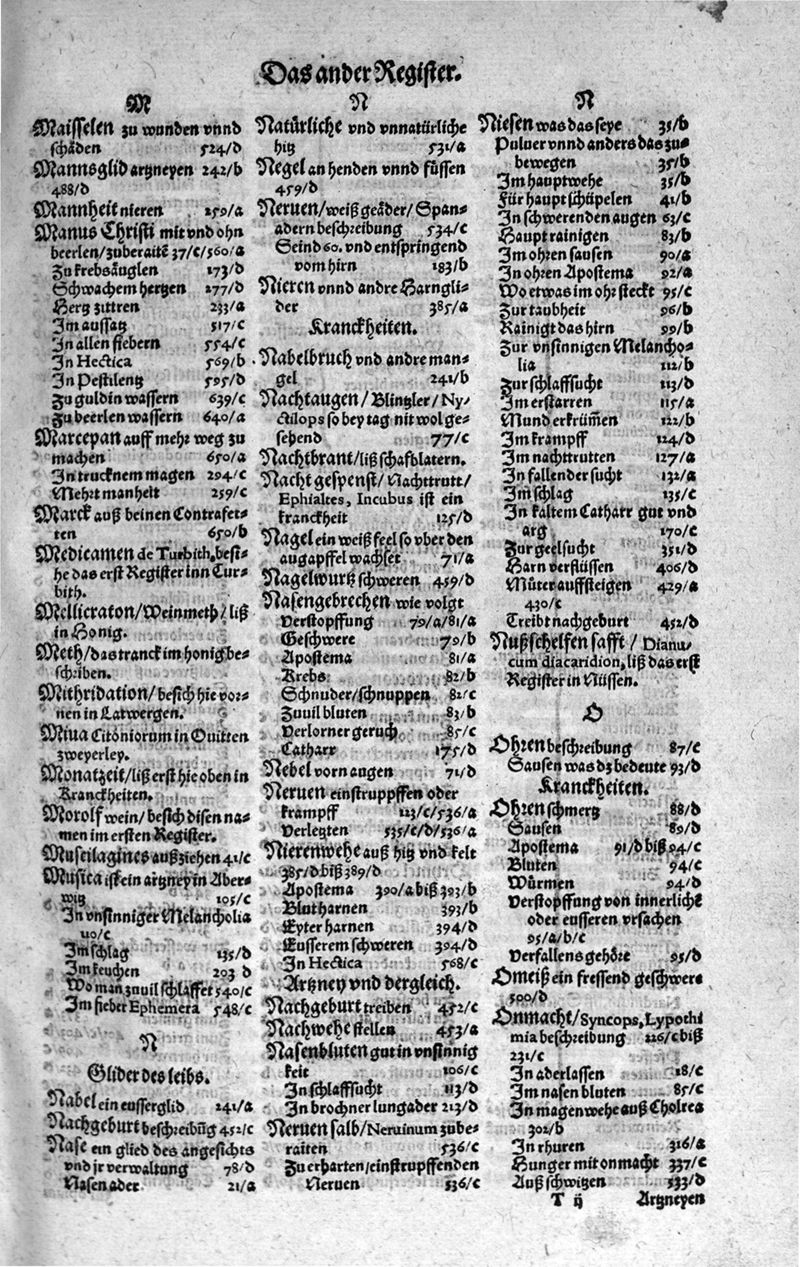 Das ander Register.
M
Maisselen zu wunden vnnd
schäden 524/d
Mannsglid artzneyen 242/b
488/d
Mannheit nieren 259/a
Manus Christi mit vnd ohn
beerlen/zuberaitē 37/c/560/a
Zu krebsäuglen 173/d
Schwachem hertzen 277/d
Hertz zittren 233/a
Im aussatz 517/c
In allen fiebern 554/c
In Hectica 569/b
In Pestilentz 595/d
Zu guldin wassern 639/c
Zu beerlen wassern 640/a
Marcepan auff mehr weg zu
machen 650/a
In trucknem magen 294/c
Mehrt manheit 259/c
Marck auß beinen Contrafet-
ten 650/b
Medicamen de Turbith, besi-
he das erst Register inn Tur-
bith.
Mellicraton/Weinmeth/liß
in Honig.
Meth/das tranck im honig be-
schriben.
Mithridation/besich hie vor-
nen in Latwergen.
Miua Citoniorum in Quitten
zweyerley.
Monatzeit/liß erst hie oben in
Kranckheiten.
Morolf wein/besich disen na-
men im ersten Register.
Muscilagines außziehen 41/c
Musica ist ein artzney in Aber-
witz 105/c
In vnsinniger Melancholia
110/c
Im schlag 135/d
Im keuchen 203 d
Wo man zuuil schlaffet 540/c
Im fieber Ephemera 548/c
N
Glider des leibs.
Nabel ein eusserglid 241/a
Nachgeburt beschreibūg 452/c
Nase ein glied des angesichts
vnd jr verwaltung 78/d
Nasen ader 21/a
N
Natürliche vnd vnnatürliche
hitz 531/a
Negel an henden vnnd füssen
459/d
Neruen/weiß geäder/Span-
adern beschreibung 534/c
Seind 60. vnd entspringend
vom hirn 183/b
Nieren vnnd andre Harngli-
der 385/a
Kranckheiten.
Nabelbruch vnd andre man-
gel 241/b
Nachtaugen/Blintzler/Ny-
ctilops so bey tag nit wol ge-
sehend 77/c
Nachtbrant/liß schafblatern.
Nacht gespenst/Nachttrutt/
Ephialtes, Incubus ist ein
kranckheit 125/d
Nagel ein weiß feel so vber den
augapffel wachset 71/a
Nagelwurtz schweren 459/d
Nasengebrechen wie volgt
Verstopffung 79/a/81/a
Geschwere 79/b
Apostema 81/a
Krebs 82/b
Schnuder/schnuppen 82/c
Zuuil bluten 83/b
Verlorner geruch 85/c
Catharr 175/d
Nebel vorn augen 71/d
Neruen einstruppffen oder
krampff 123/c/536/a
Verletzten 535/c/d/536/a
Nierenwehe auß hitz vnd kelt
385/d biß 389/d
Apostema 390/a biß 393/b
Blutharnen 393/b
Eyter harnen 394/d
Eusserem schweren 394/d
In Hectica 568/c
Artzney vnd dergleich.
Nachgeburt treiben 452/c
Nachwehe stellen 453/a
Nasenbluten gut in vnsinnig
keit 106/c
In schlaffsucht 113/d
In brochner lungader 213/d
Neruen salb/Neruinum zube-
raiten 536/c
Zu erharten/einstrupffenden
Neruen 536/c
N
Niesen was das seye 35/b
Puluer vnnd anders das zu-
bewegen 35/b
Im hauptwehe 35/b
Für haupt schüpelen 41/b
In schwerenden augen 63/c
Haupt rainigen 83/b
Im ohren sausen 90/a
In ohren Apostema 92/a
Wo etwas im ohr steckt 95/c
Zur taubheit 96/b
Rainigt das hirn 99/b
Zur vnsinnigen Melancho-
lia 112/b
Zur schlaffsucht 113/d
Im erstarren 115/a
Mund erkrümmen 122/b
Im krampff 124/d
Im nachttrutten 127/a
In fallender sucht 132/a
Im schlag 135/c
In kaltem Catharr gut vnd
arg 170/c
Zur geelsucht 351/d
Harn verflüssen 406/d
Müter auffsteigen 429/a
430/c
Treibt nachgeburt 452/d
Nußschelfen safft/Dianu-
cum diacaridion, liß das erst
Register in Nüssen.
O
Ohren beschreibung 87/c
Sausen was dz bedeute 93/d
Kranckheiten.
Ohren schmertz 88/d
Sausen 89/d
Apostema 91/d biß 94/c
Bluten 94/c
Würmen 94/d
Verstopffung von innerliche
oder eusseren vrsachen
95/a/b/c
Verfallens gehöre 95/d
Omeiß ein fressend geschwere
500/d
Onmacht/Syncops, Lypothi
mia beschreibung 226/c biß
231/c
In aderlassen 18/c
Im nasen bluten 85/c
In magenwehe auß Cholrea
302/b
In rhuren 316/a
Hunger mit onmacht 337/c
Auß schwitzen 533/d
T ij Artzneyen